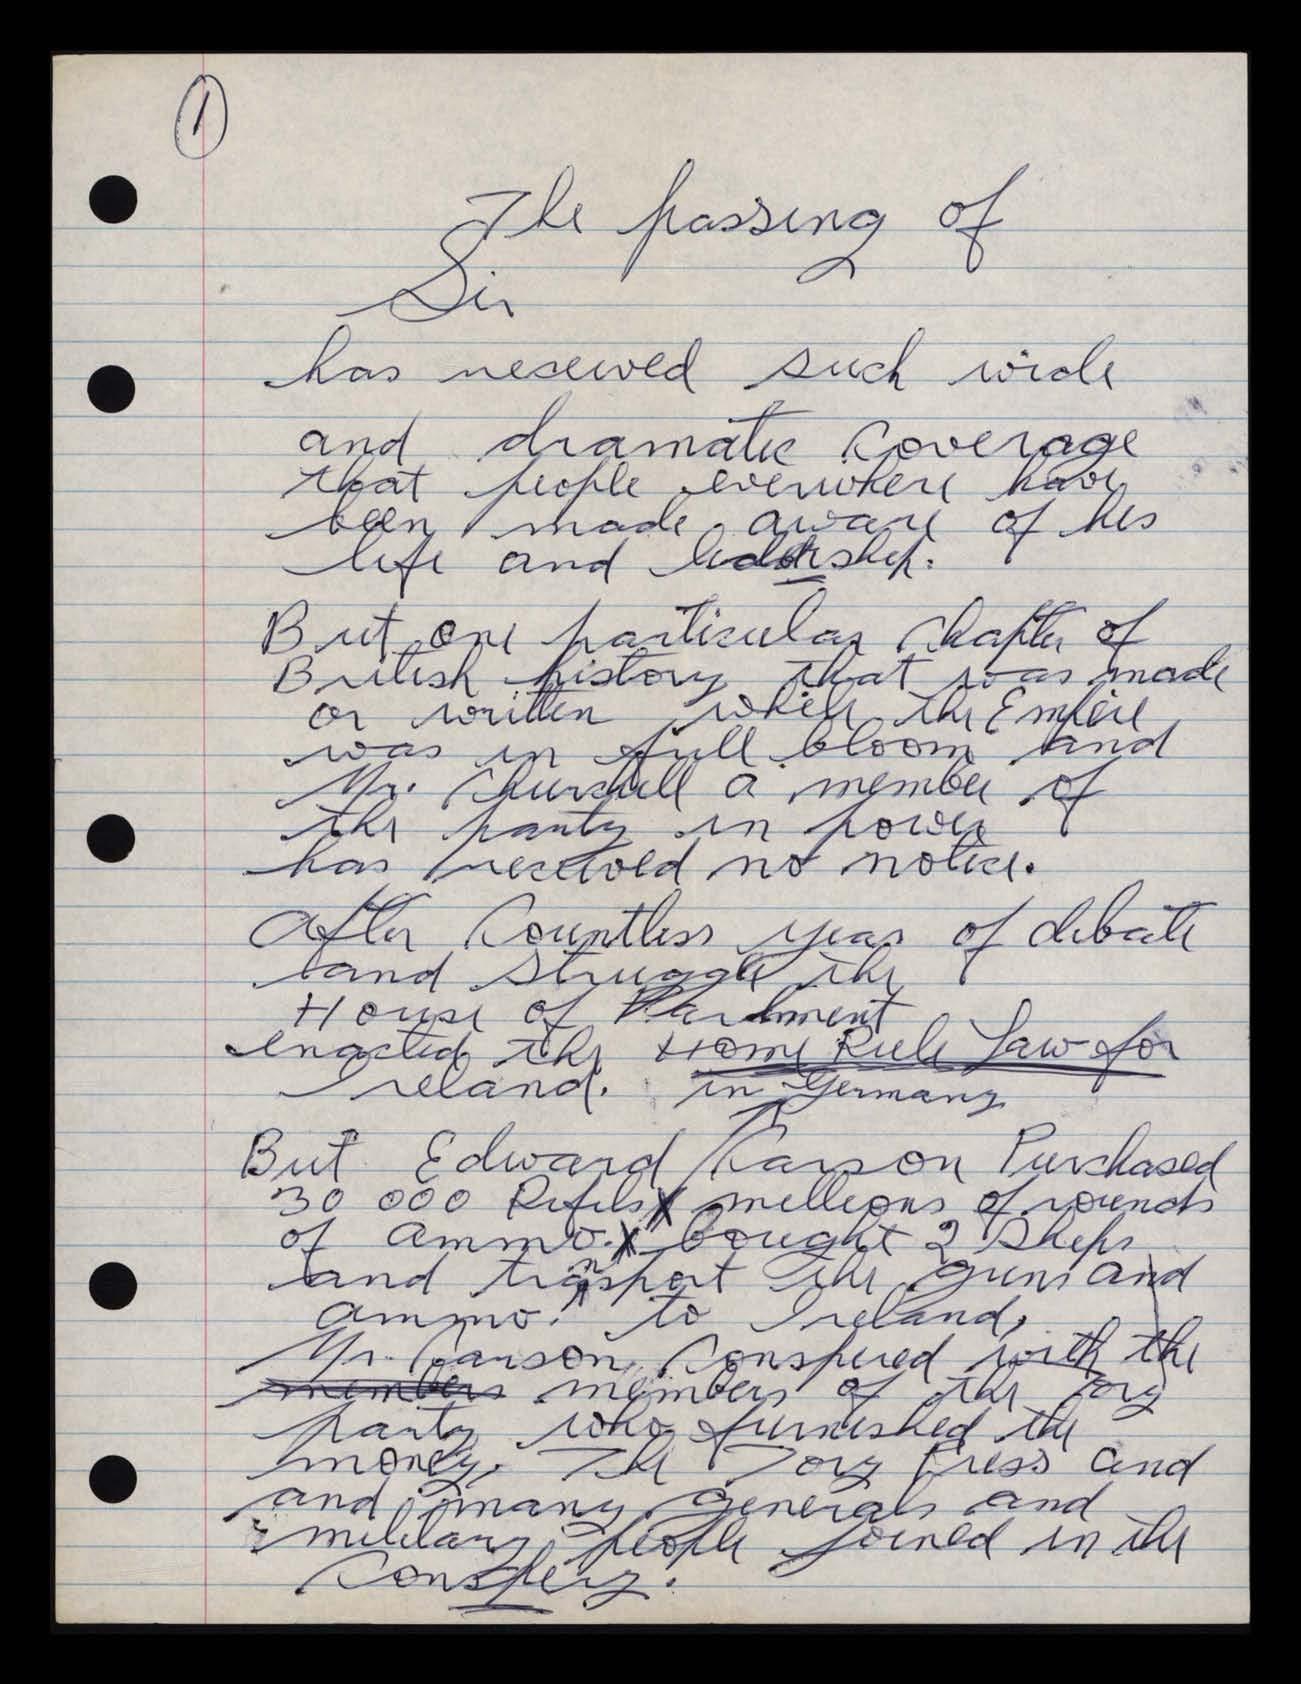 1
The passing of
Sir
has received such wide
and dramatic coverage
that people everwhere have
been made aware of his
life and leadership.
But one particular chapter of
British history that was made
or written while the Empire
was in full bloom and
Mr. Churchill a member of
the party in power
has received no notice.
After Countless years of debate
and struggle the
House of Parliment
enacted the Home Rule Law for
Ireland. in Germany
But Edward Carson Purchased
30 000 Rifels millions of rounds
of ammo. bought 2 Ships
and transport the guns and
ammo. to Ireland,
Mr. Carson Conspired with the
members members of the Tory
party who furnished the
money. The Tory Press and
and many generals and
military people joined in the
Conspiry.